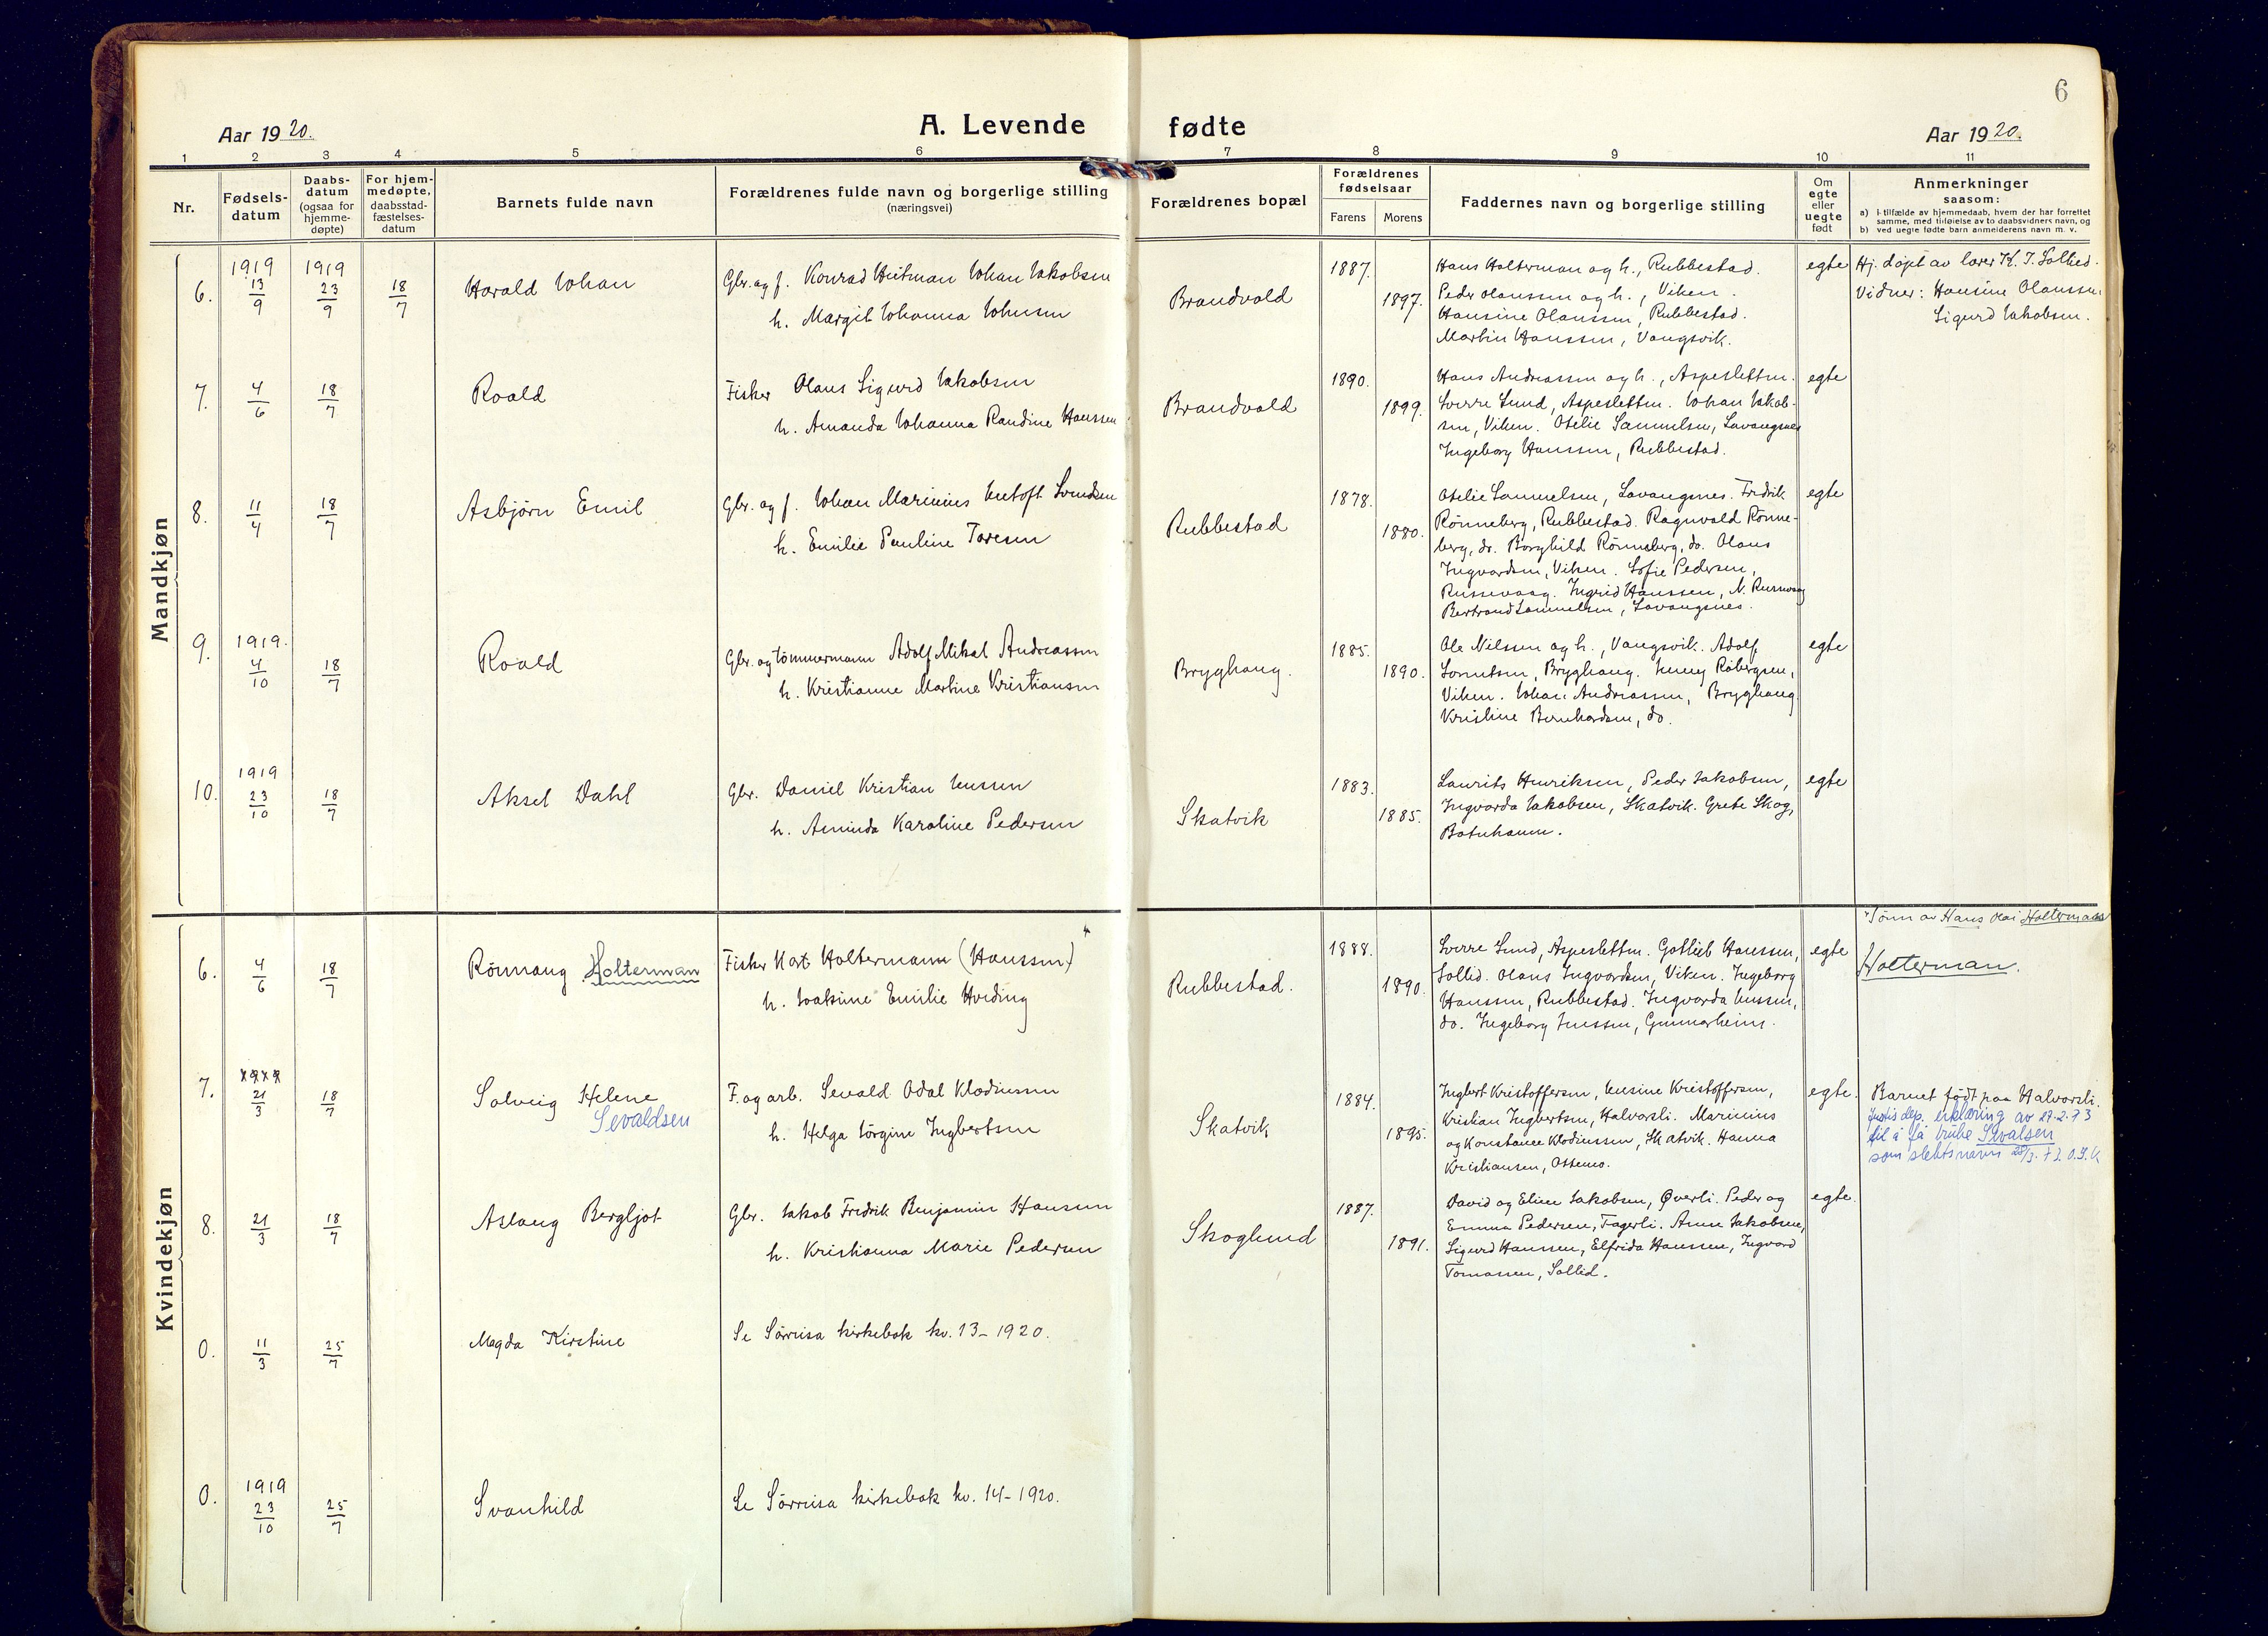 6
Aar 1920.
A. Levende fødte
Aar 1920.
1 2 3 4 5 6 7 8 9 10 11
Nr.
Fødsels-
datum
Daabs-
datum
(ogsaa for
hjemme-
døpte)
For hjem-
medøpte,
daabsstad-
fæstelses-
datum
Barnets fulde navn
Forældrenes fulde navn og borgerlige stilling
(næringsvei)
Forældrenes bopæl
Forældrenes
fødselsaar
Farens Morens
Faddernes navn og borgerlige stilling
Om
egte
eller
uegte
født
Anmerkninger
saasom:
a) i tilfælde av hjemmedaab, hvem der har forrettet
samme, med tilføielse av to daabsvidners navn, og
b) ved uegte fødte barn anmelderens navn m. v.
Mandkjøn
6.
1919
13/9
1919
23/9
18/7
Harald Johan
Gbr. og f. Konrad Heitman Johan Jakobsen
h. Margit Johanna Johnsen
Brandvold
1887.
1897.
Hans Holterman og h., Rubbestad.
Peder Olaussen og h., Viken.
Hansine Olaussen, Rubbestad.
Martin Hanssen, Vangsvik.
egte
Hj. døpt av lærer K. J. Sollied.
Vidner: Hansine Olaussen,
Sigurd Jakobsen.
7.
4/6
18/7
Roald
Fisker Olaus Sigurd Jakobsen
h. Amanda Johanna Randine Hanssen
Brandvold
1890.
1899.
Hans Andreassen og h., Aspesletten.
Sverre Lund, Aspesletten. Johan Jakob-
sen, Viken. Otelie Samuelsen, Lavangsnes
Ingeborg Hanssen, Rubbestad.
egte
8.
11/4
18/7
Asbjørn Emil
Gbr. og f. Johan Marinius Jentoft Svendsen
h. Emilie Pauline Toresen
Rubbestad
1878.
1880.
Otelie Samuelsen, Lavangsnes. Fredrik
Rönneberg, Rubbestad. Ragnvald Rönne-
berg, do. Borghild Rönneberg, do. Olaus
Ingvardsen, Viken. Sofie Pedersen,
Russevaag. Ingrid Hanssen, N. Russevaag
Bertrand Samuelsen, Lavangsnes.
egte
9.
1919.
4/10
18/7
Roald
Gbr. og tömmermann Adolf Mikal Andreassen
h. Kristianne Martine Kristiansen
Bryghaug.
1885.
1890.
Ole Nilssen og h., Vangsvik. Adolf
Bryghaug. Jenny
Viken. Johan Andreassen, Bryghaug
Kristine Bernhardsen, do.
egte
10.
1919
23/10
18/7
Aksel Dahl
Gbr. Daniel Kristian Jenssen
h. Aminda Karoline Pedersen
Skatvik
1883.
1885.
Laurits Henriksen, Peder Jakobsen,
Ingvarda Jakobsen, Skatvik. Grete Skog,
Botnhavn.
egte
Kvindekjøn
6.
4/6
18/7
Rönnaug Holterman
Fisker Kort Holtermann (Hanssen)
h. Joakime Emilie Hveding
Rubbestad.
1888.
1890.
Sverre Lund, Aspesletten. Gotlieb Hanssen,
Sollid. Olaus Ingvardsen, Viken. Ingeborg
Hanssen, Rubbestad. Ingvarda Jenssen,
do. Ingeborg Jenssen, Gunnarheim.
egte
Sønn av Hans Olai Holtermann
Holterman.
7.
21/3
18/7
Solveig Helene
Sevaldsen
F. og arb. Sevald Odal Klodiussen
h. Helga Jörgine Ingbertsen
Skatvik
1884.
1895.
Ingbert Kristoffersen, Jensine Kristoffersen,
Kristian Ingbertsen, Halvorsli. Marinius
og Konstance Klodiussen, Skatvik. Hanna
Kristiansen,
egte.
Barnet født paa Halvorsli.
Justis dep. erklæring av 27.2.73
til å få bruke Sevalsen
som slektsnavn 28/3.73. O.S.K
8.
21/3
18/7
Aslaug Bergljot
Gbr. Jakob Fredrik Benjamin Hansen
h. Kristianna Marie Pedersen
Skoglund
1887.
1891.
David og Eline Jakobsen, Øverli. Peder og
Emma Pedersen, Fagerli. Anne Jakobsen,
Sigurd Hanssen, Elfrida Hanssen, Ingvard
Tomassen, Sollid.
egte.
0.
11/3
25/7
Magda Kirstine
Se Sörreisa kirkebok kv. 13-1920.
0.
1919
23/10
25/7
Svanhild
Se Sörreisa kirkebok kv. 14-1920.